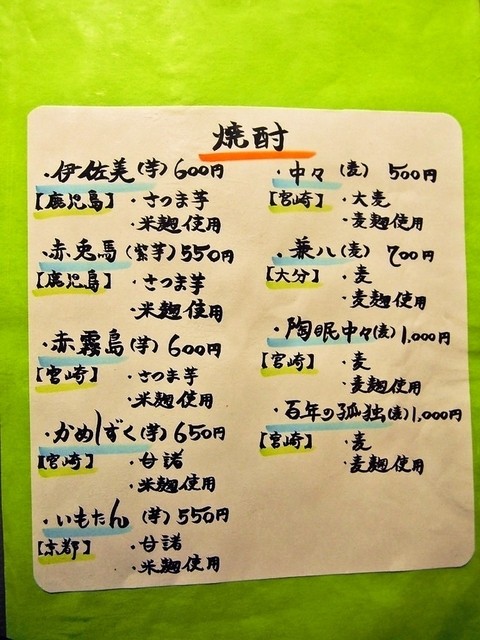 焼酎
・伊佐美(芋) 600円
【鹿児島】・さつま芋
・米麹使用
・赤兎馬(紫芋) 550円
【鹿児島】・さつま芋
・米麹使用
・赤霧島(芋) 600円
【宮崎】・さつま芋
・米麹使用
・かめしずく(芋) 650円
【宮崎】・甘諸
・米麹使用
・いもたん(芋) 550円
【京都】・甘諸
・米麹使用
・中々(麦) 500円
【宮崎】・大麦
・麦麹使用
・兼八(麦) 700円
【大分】・麦
・麦麹使用
・陶眠中々(麦) 1,000円
【宮崎】・麦
・麦麹使用
・百年の孤独(麦) 1,000円
【宮崎】・麦
・麦麹使用